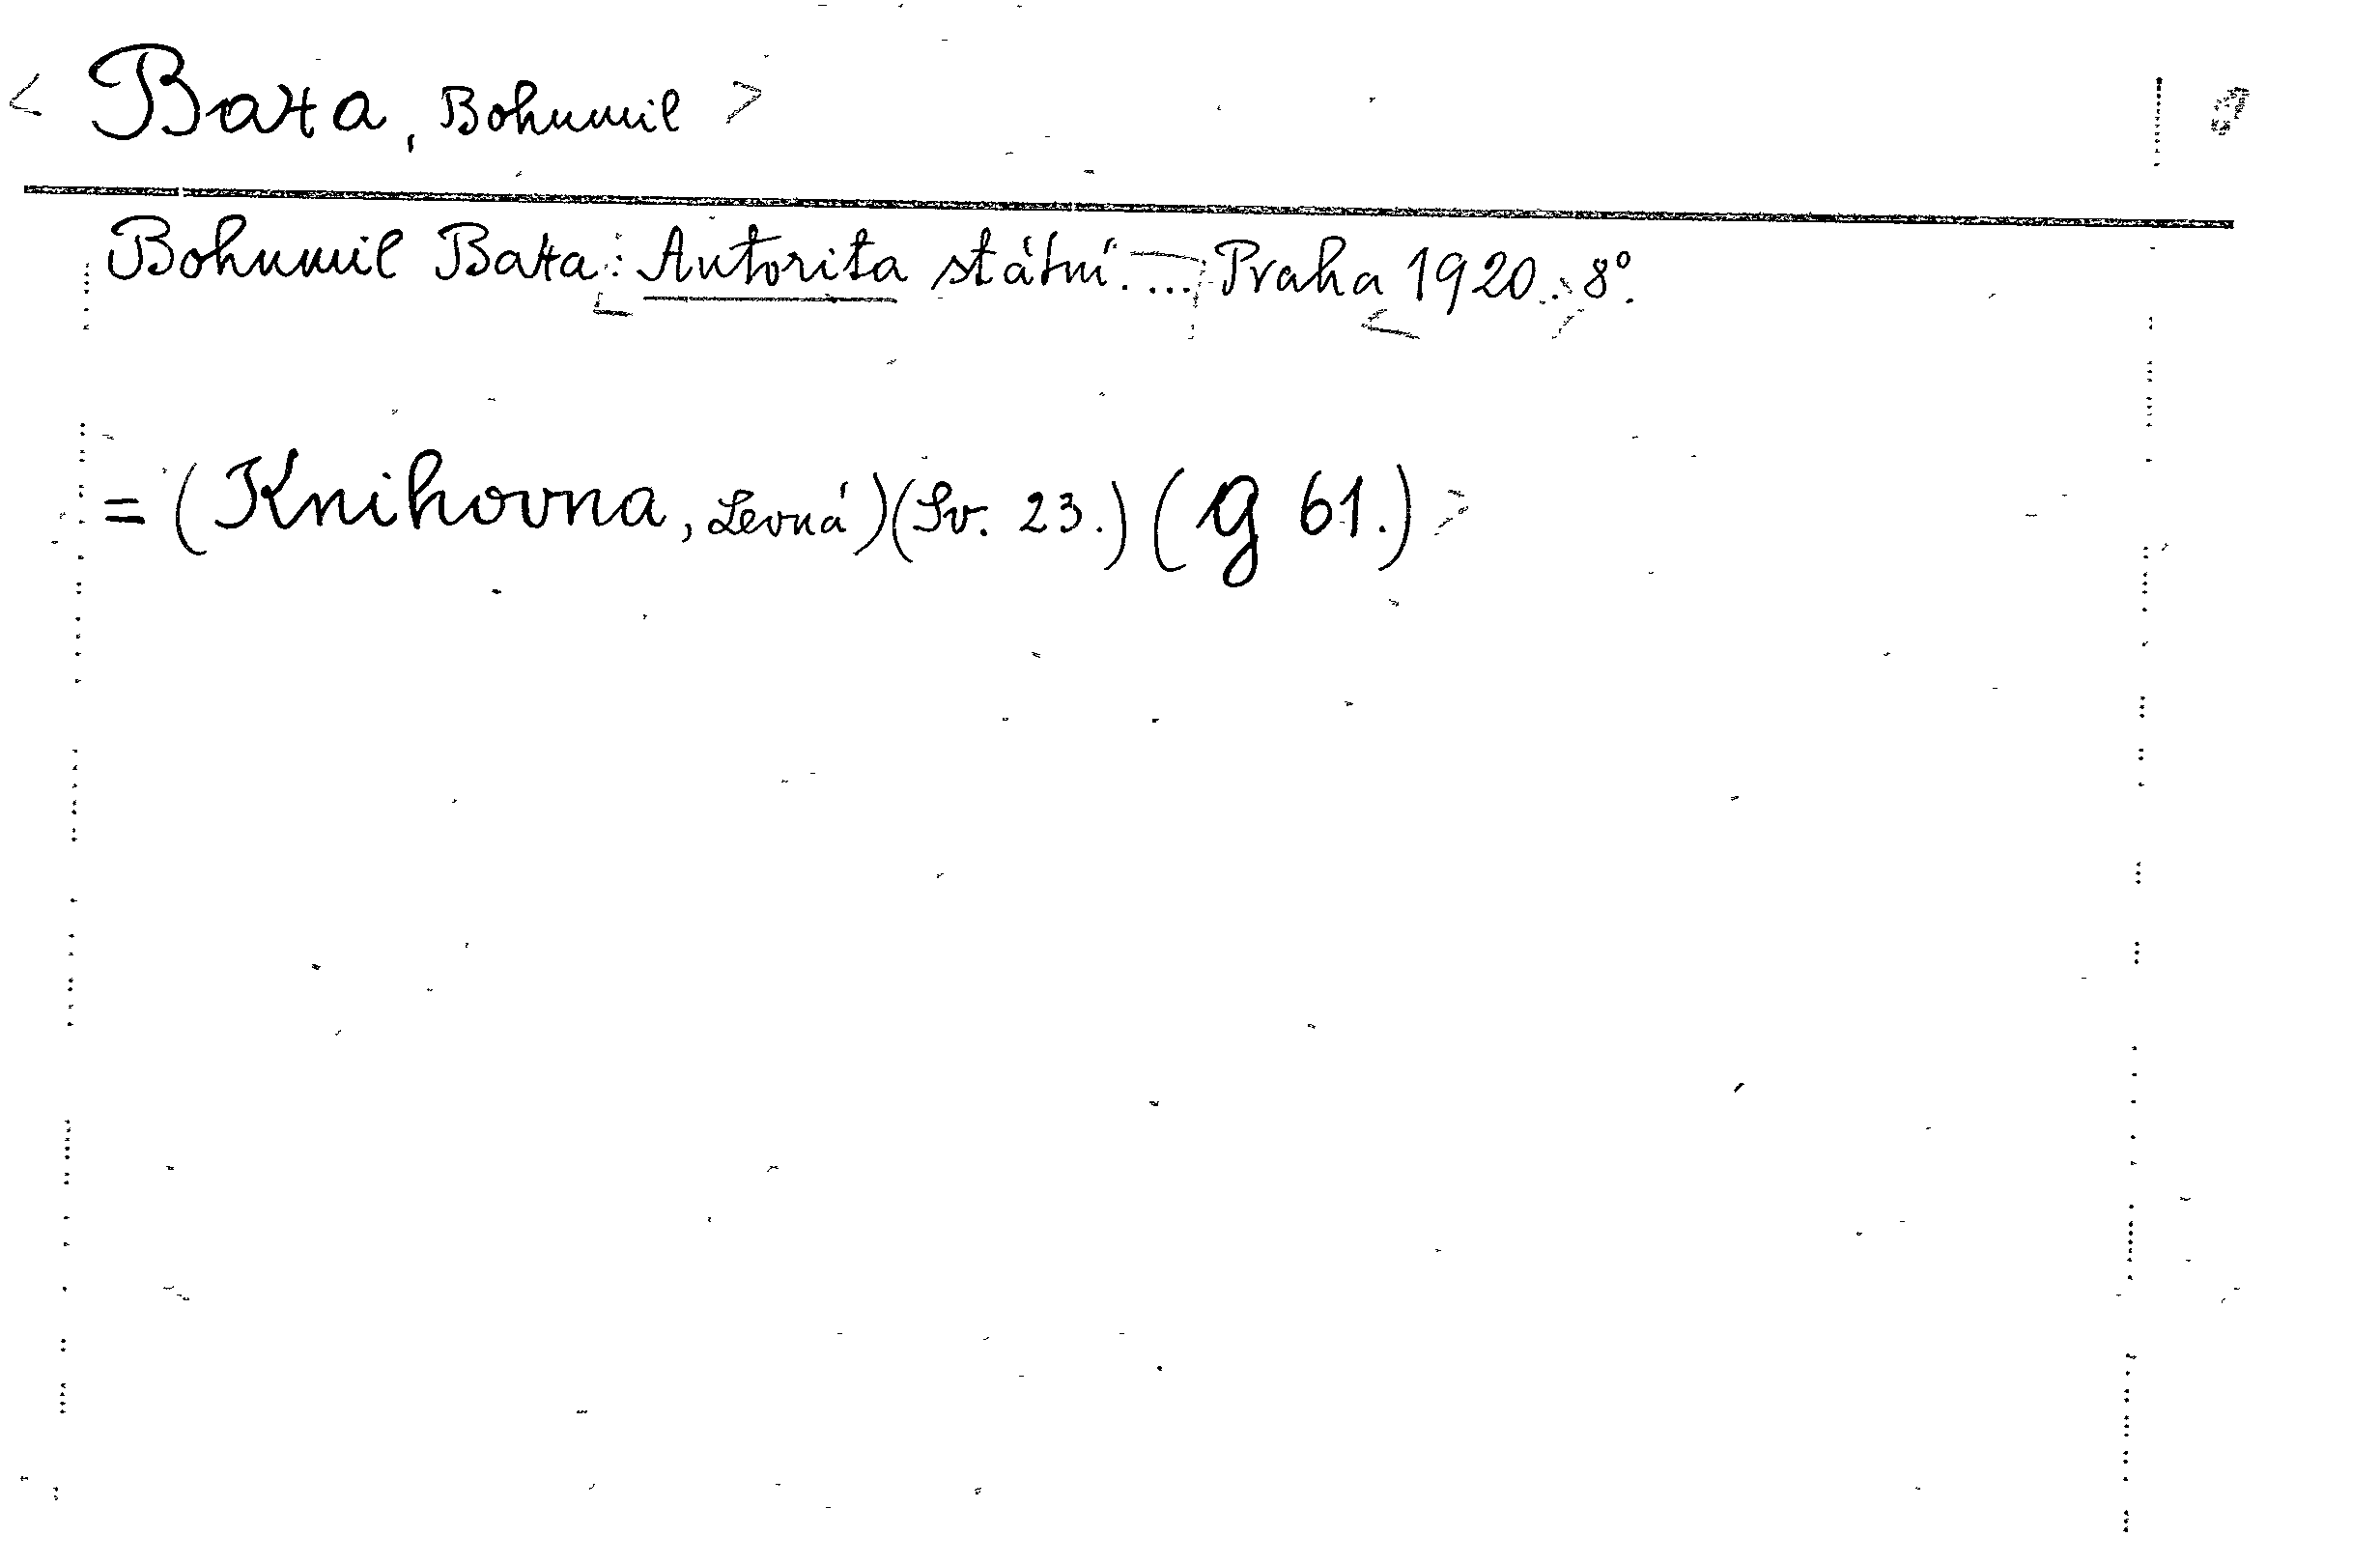 < Baxa, Bohumil >
Bohumil Baxa: Autorita státní. ... Praha 1920. 8°.
= (Knihovna, Levná) (Sv. 23.) (g 61.) >